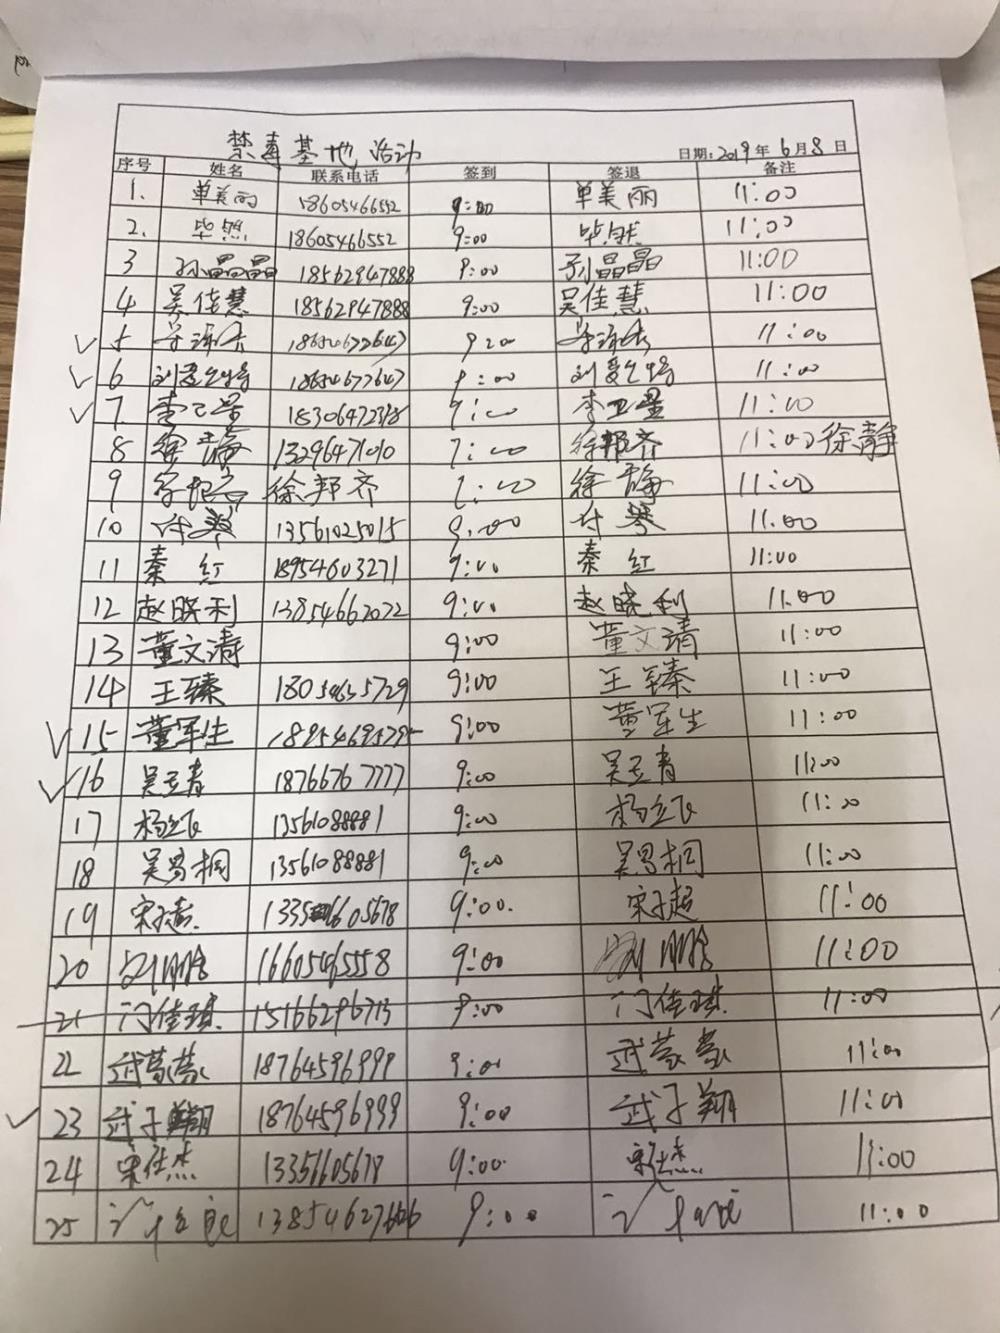 禁毒基地活动
日期:2019年6月8日
序号 姓名 联系电话 签到 签退 备注
1. 单美丽 18605466552 9:00 单美丽 11:00
2. 毕然 18605466552 9:00 毕然 11:00
3 孙晶晶 18562947888 9:00 孙晶晶 11:00
4 吴佳慧 18562947888 9:00 吴佳慧 11:00
5 9:00 11:00
6 9:00 11:00
7 李卫星 9:00 李卫星 11:00
8 徐静 13296471010 9:00 徐邦齐 11:00 徐静
9 徐邦齐 9:00 徐静 11:00
10 付琴 13561025015 9:00 付琴 11:00
11 秦红 18954603271 9:00 秦红 11:00
12 赵晓利 13854662022 9:00 赵晓利 11:00
13 董文清 9:00 董文清 11:00
14 王臻 18054635729 9:00 王臻 11:00
15 董军生 9:00 董军生 11:00
16 吴玉青 18766767777 9:00 吴玉青 11:00
17 13561088881 9:00 11:00
18 13561088881 9:00 11:00
19 9:00. 宋子超 11:00
20 16605465558 9:00 11:00
21 门佳琪 15166296713 9:00 门佳琪 11:00
22 武蒙蒙 18764596999 9:00 武蒙蒙 11:00
23 武子翔 18764596999 9:00 武子翔 11:00
24 宋佳杰 13351605678 9:00 宋佳杰 11:00
25 9:00 11:00